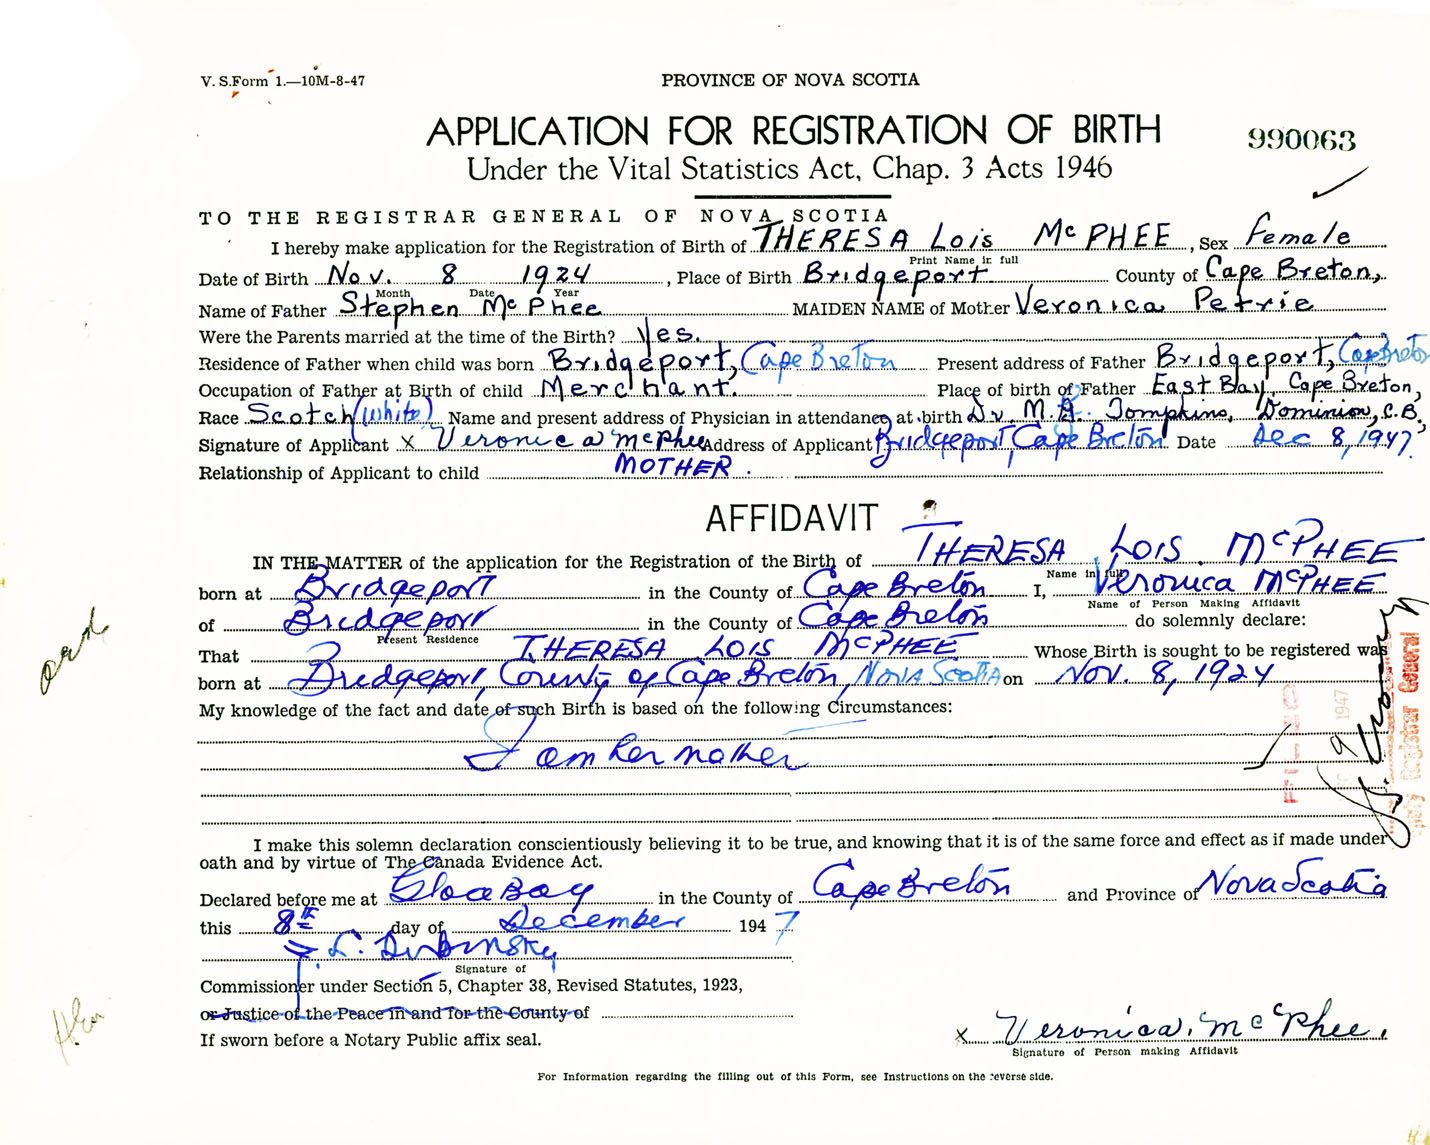 V. S. Form 1.—10M-8-47
PROVINCE OF NOVA SCOTIA
APPLICATION FOR REGISTRATION OF BIRTH
990063
Under the Vital Statistics Act, Chap. 3 Acts 1946
TO THE REGISTRAR GENERAL OF NOVA SCOTIA
I hereby make application for the Registration of Birth of THERESA Lois McPHEE, Sex Female
Print Name in full
Date of Birth Nov. 8 1924, Place of Birth Bridgeport County of Cape Breton,
Month Date Year
Name of Father Stephen McPhee MAIDEN NAME of Mother Veronica Petrie
Were the Parents married at the time of the Birth? Yes.
Residence of Father when child was born Bridgeport, Cape Breton Present address of Father Bridgeport, Cape Breton
Occupation of Father at Birth of child Merchant. Place of birth of Father East Bay, Cape Breton,
Race Scotch (white) Name and present address of Physician in attendance at birth Dr. M. Tompkins, Dominion, C.B.
Signature of Applicant x Veronica McPhee Address of Applicant Bridgeport, Cape Breton Date Dec 8, 1947
Relationship of Applicant to child MOTHER.
AFFIDAVIT
IN THE MATTER of the application for the Registration of the Birth of THERESA LOIS McPHEE
Name in full
born at Bridgeport in the County of Cape Breton I, Veronica McPHEE
Name of Person Making Affidavit
of Bridgeport in the County of Cape Breton do solemnly declare:
Present Residence
That THERESA LOIS McPHEE Whose Birth is sought to be registered was
born at Bridgeport, County of Cape Breton, Nova Scotia on Nov. 8, 1924
My knowledge of the fact and date of such Birth is based on the following Circumstances:
I am her mother
FILED
9 1947
Registrar General
I make this solemn declaration conscientiously believing it to be true, and knowing that it is of the same force and effect as if made under
oath and by virtue of The Canada Evidence Act.
Declared before me at Glace Bay in the County of Cape Breton and Province of Nova Scotia
this 8th day of December 1947
L. Dubinsky
Signature of
Commissioner under Section 5, Chapter 38, Revised Statutes, 1923,
or Justice of the Peace in and for the County of
If sworn before a Notary Public affix seal.
x Veronica McPhee.
Signature of Person making Affidavit
For Information regarding the filling out of this Form, see Instructions on the reverse side.